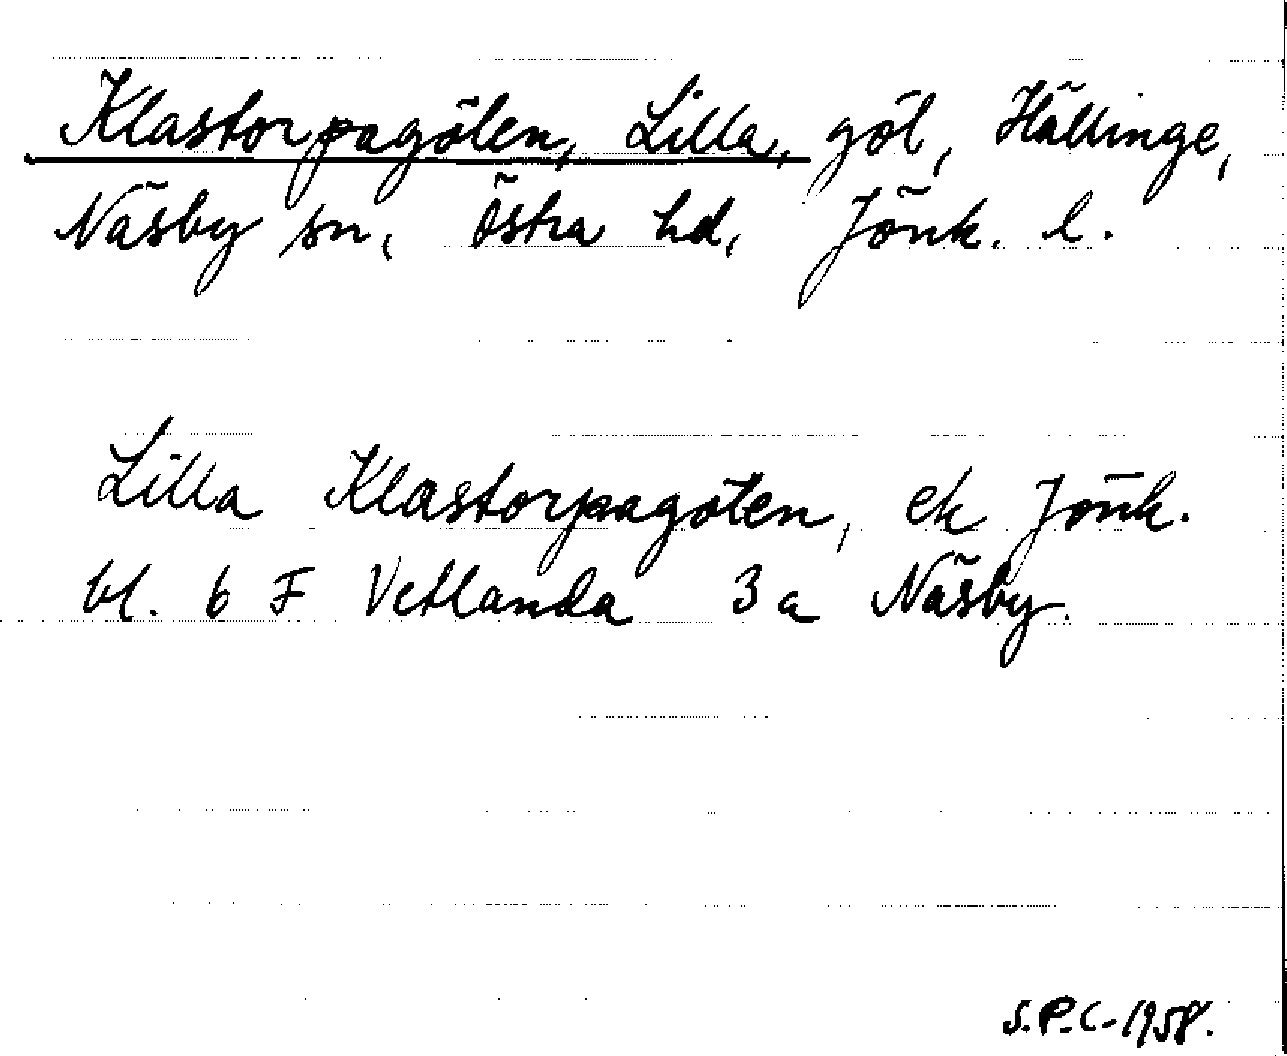 Klastorpagölen, Lilla, göl, Hällinge,
Näsby sn, Östra hd, Jönk. l.
Lilla Klastorpagölen, ek Jönk.
bl. 6 F Vetlanda 3 a Näsby.
S.P.C-1958.